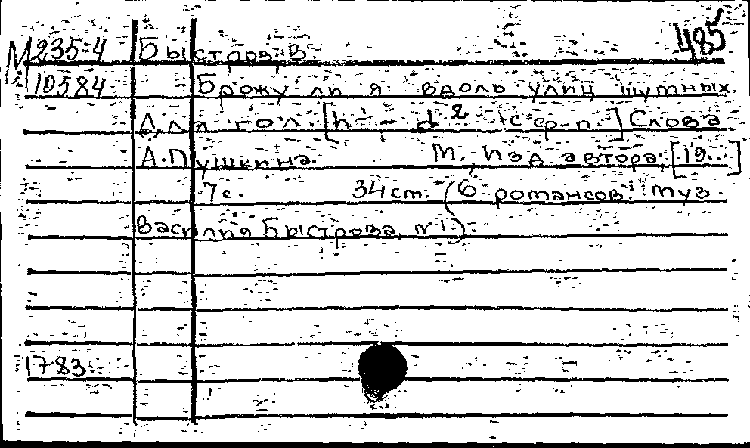 485
М 235-4 Быстров, В.
10584 Брожу ли я вдоль улиц шумных.
Для гол. [h - d² с ф-п.] Слова
А. Пушкина. М. Изд автора, [19..]
7 с. 34 см. (6 романсов. Муз.
Василия Быстрова, № 1.)
1783